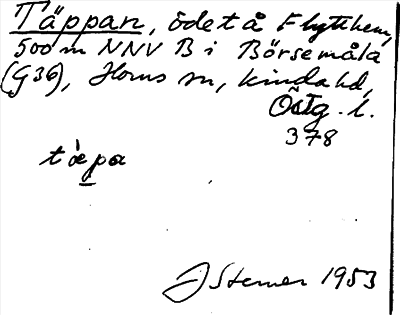 Täppan, ödet å Flytthem,
500 m NNV B i Börsemåla
(G36), Horns sn, Kinda hd,
Östg. l.
378
tæpa
J Stemer 1953